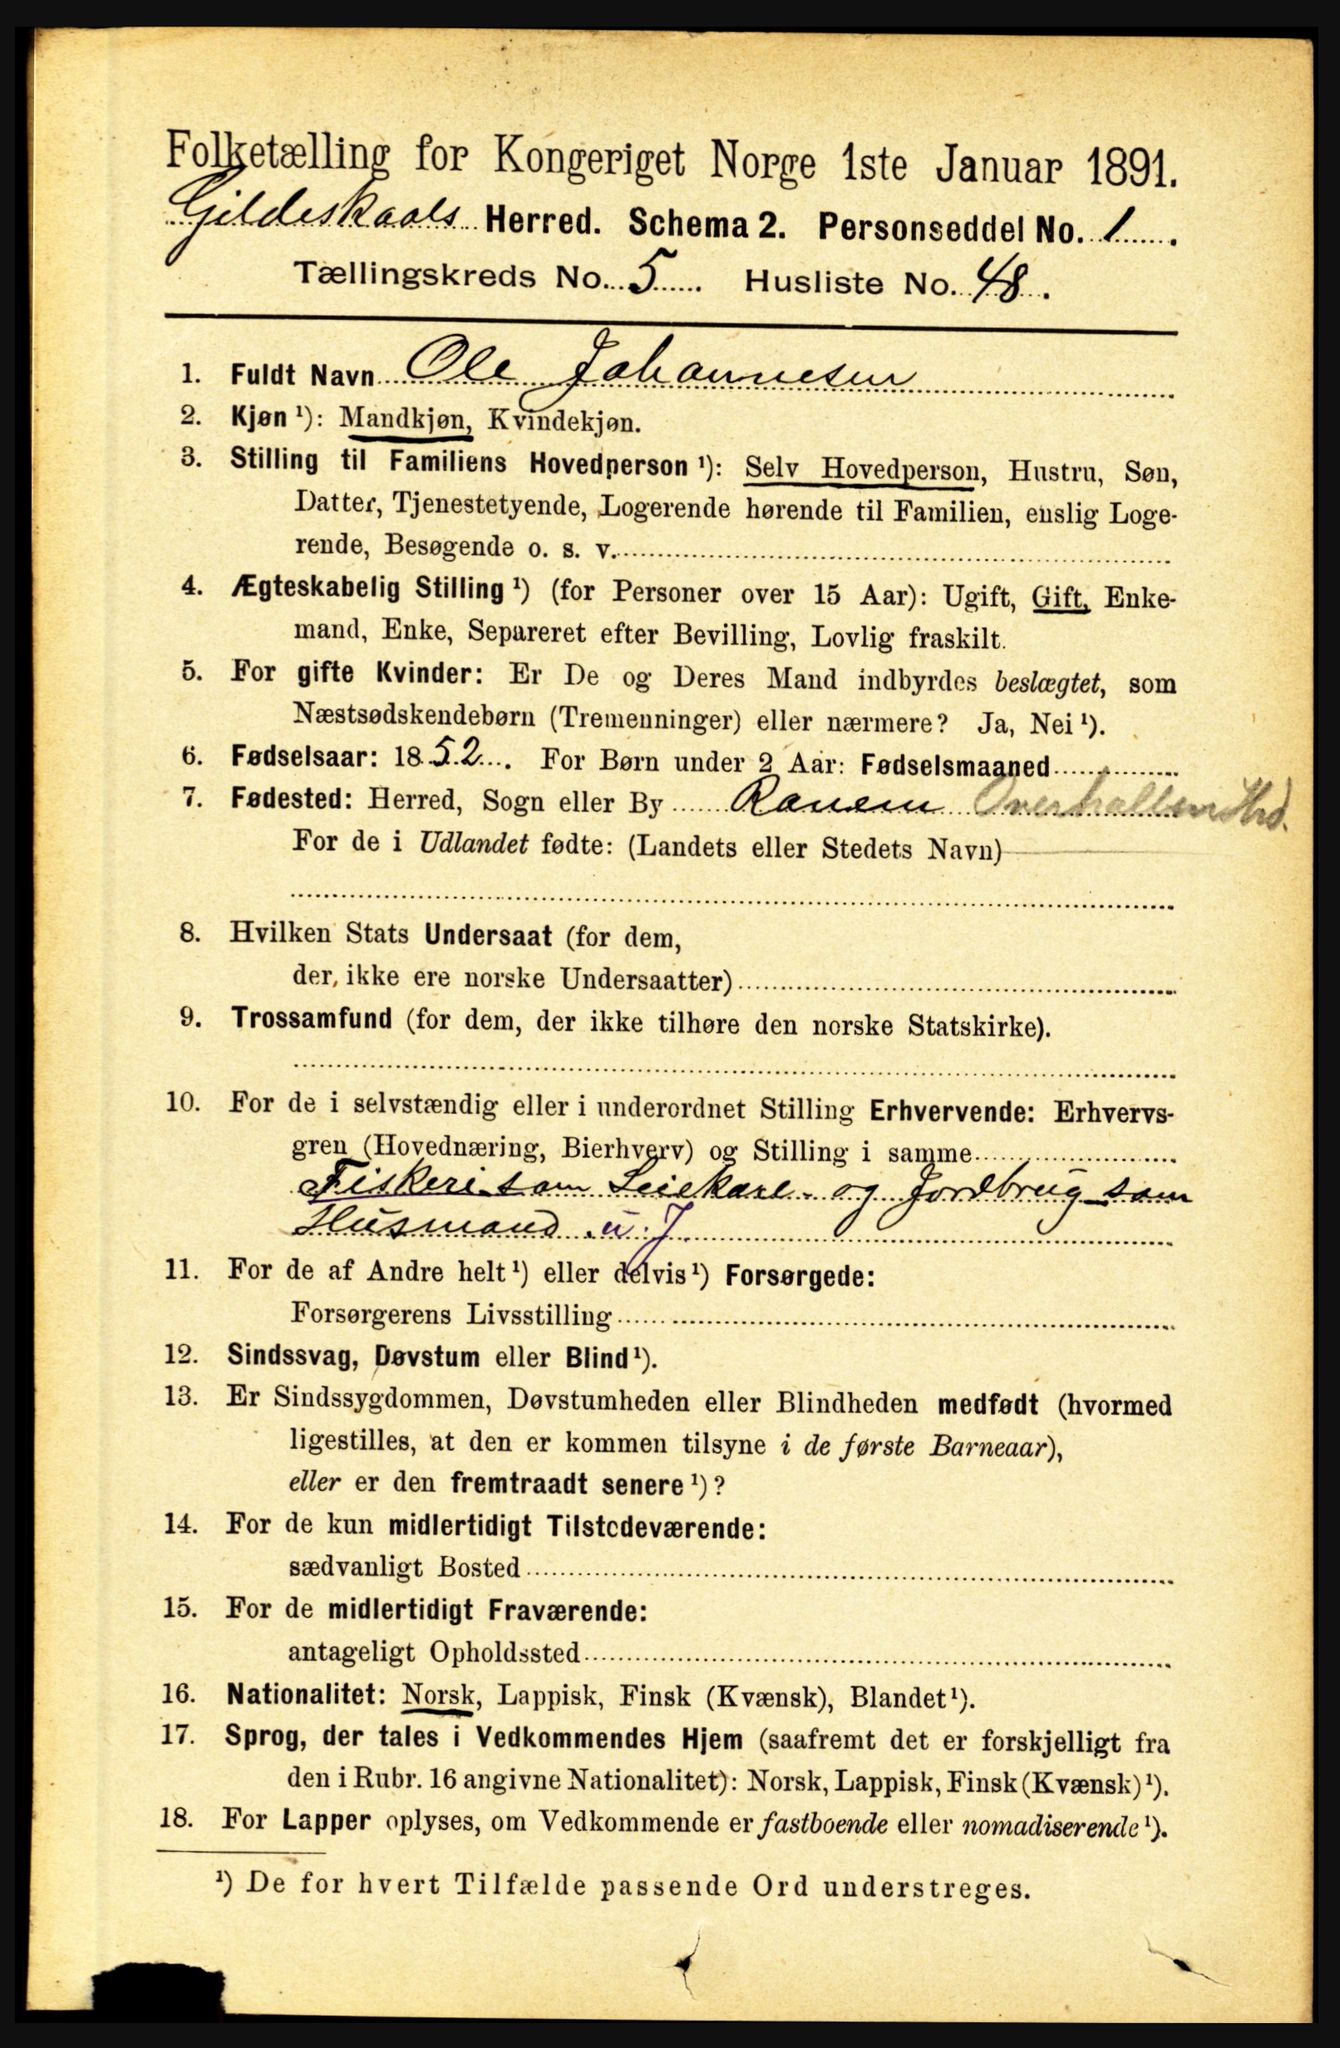 Folketælling for Kongeriget Norge 1ste Januar 1891.
Gildeskaals Herred. Schema 2. Personseddel No. 1.
Tællingskreds No. 5. Husliste No. 48.
1. Fuldt Navn Ole Johannesen
2. Kjøn ¹): Mandkjøn, Kvindekjøn.
3. Stilling til Familiens Hovedperson ¹): Selv Hovedperson, Hustru, Søn,
Datter, Tjenestetyende, Logerende hørende til Familien, enslig Loge-
rende, Besøgende o. s. v.
4. Ægteskabelig Stilling ¹) (for Personer over 15 Aar): Ugift, Gift, Enke-
mand, Enke, Separeret efter Bevilling, Lovlig fraskilt.
5. For gifte Kvinder: Er De og Deres Mand indbyrdes beslægtet, som
Næstsødskendebørn (Tremenninger) eller nærmere? Ja, Nei ¹).
6. Fødselsaar: 1852. For Børn under 2 Aar: Fødselsmaaned
7. Fødested: Herred, Sogn eller By Ranem Overhallen Hrd.
For de i Udlandet fødte: (Landets eller Stedets Navn)
8. Hvilken Stats Undersaat (for dem,
der, ikke ere norske Undersaatter)
9. Trossamfund (for dem, der ikke tilhøre den norske Statskirke).
10. For de i selvstændig eller i underordnet Stilling Erhvervende: Erhvervs-
gren (Hovednæring, Bierhverv) og Stilling i samme
Fiskeri som Leiekarl og Jordbrug som
Husmand u. J
11. For de af Andre helt ¹) eller delvis ¹) Forsørgede:
Forsørgerens Livsstilling
12. Sindssvag, Døvstum eller Blind ¹).
13. Er Sindssygdommen, Døvstumheden eller Blindheden medfødt (hvormed
ligestilles, at den er kommen tilsyne i de første Barneaar),
eller er den fremtraadt senere ¹)?
14. For de kun midlertidigt Tilstedeværende:
sædvanligt Bosted
15. For de midlertidigt Fraværende:
antageligt Opholdssted
16. Nationalitet: Norsk, Lappisk, Finsk (Kvænsk), Blandet ¹).
17. Sprog, der tales i Vedkommendes Hjem (saafremt det er forskjelligt fra
den i Rubr. 16 angivne Nationalitet): Norsk, Lappisk, Finsk (Kvænsk) ¹).
18. For Lapper oplyses, om Vedkommende er fastboende eller nomadiserende ¹).
¹) De for hvert Tilfælde passende Ord understreges.